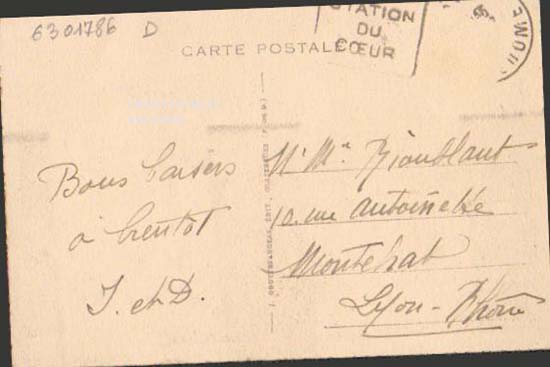 6301786 D
CARTE POSTALE
STATION
DU
CŒUR
Bons baisers
à bientot
J. et D.
Mr Me Rioublant
10 rue Antoinette
Montchat
Lyon - Rhône